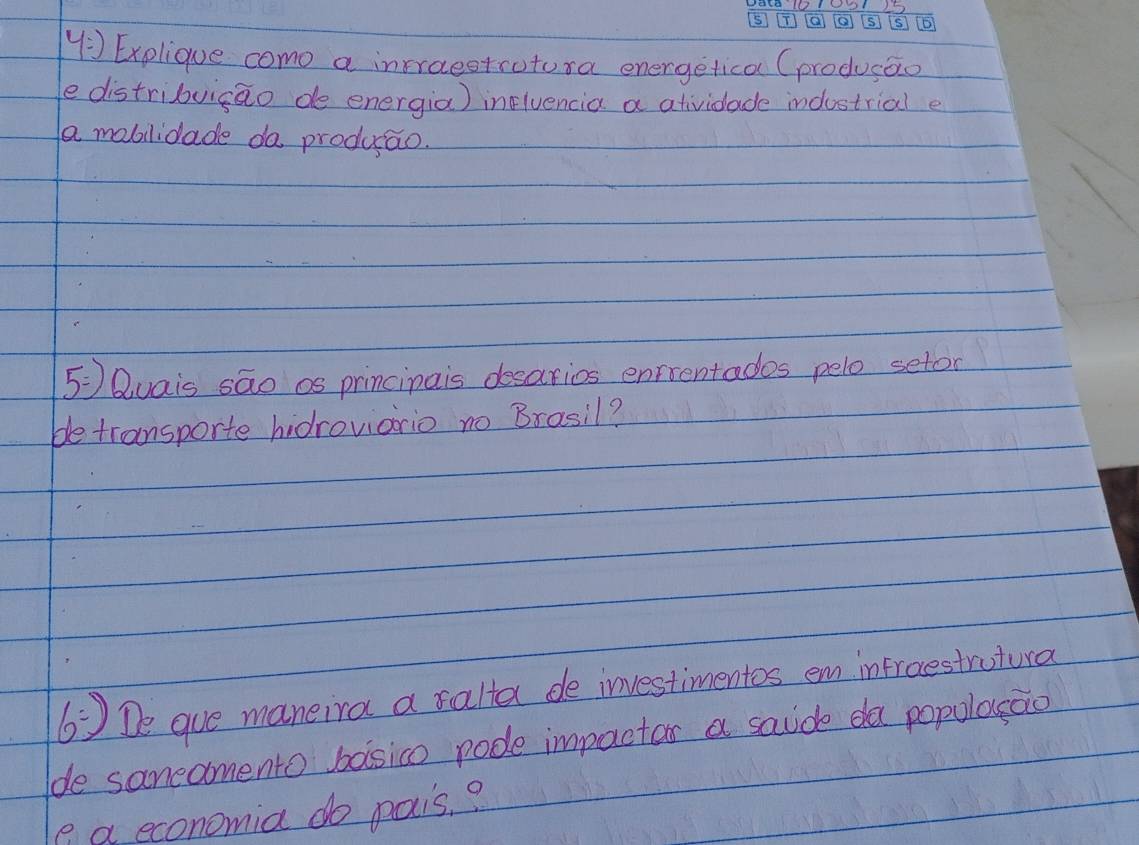 Data 16 / 05 / 25
S T Q Q S S D
4=) Explique como a infraestrutura energética (produção
e distribuição de energia) influencia a atividade industrial e
a mobilidade da produção.
5=) Quais são os principais desafios enfrentados pelo setor
de transporte hidroviário no Brasil?
6=) De que maneira a falta de investimentos em infraestrutura
de saneamento básico pode impactar a saúde da população
e a economia do país.?